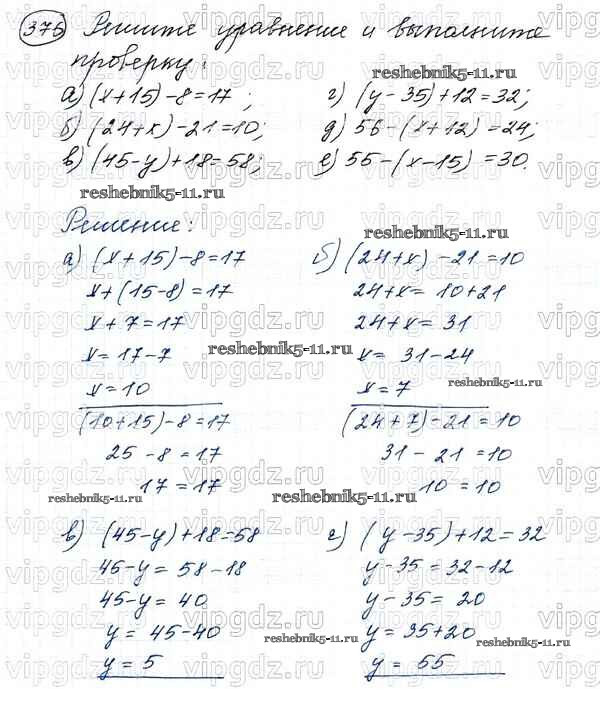 375 Решите уравнение и выполните
проверку:
а) (x+15)-8=17;
б) (24+x)-21=10;
в) (45-y)+18=58;
г) (y-35)+12=32;
д) 56-(x+12)=24;
е) 55-(x-15)=30.
reshebnik5-11.ru
reshebnik5-11.ru
Решение:
reshebnik5-11.ru
а) (x+15)-8=17
x+(15-8)=17
x+7=17
x=17-7
x=10
(10+15)-8=17
25-8=17
17=17
б) (24+x)-21=10
24+x=10+21
24+x=31
x=31-24
x=7
(24+7)-21=10
31-21=10
10=10
reshebnik5-11.ru
reshebnik5-11.ru
reshebnik5-11.ru
reshebnik5-11.ru
в) (45-y)+18=58
45-y=58-18
45-y=40
y=45-40
y=5
г) (y-35)+12=32
y-35=32-12
y-35=20
y=35+20
y=55
reshebnik5-11.ru
reshebnik5-11.ru
vipgdz.ru